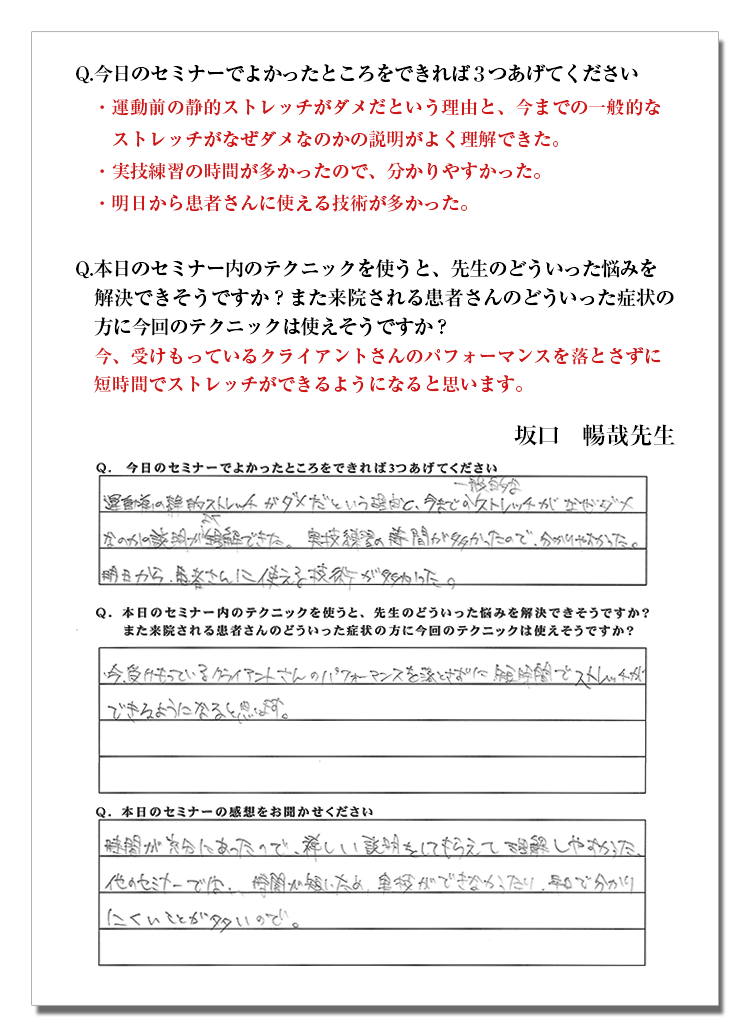 Q.今日のセミナーでよかったところをできれば３つあげてください
・運動前の静的ストレッチがダメだという理由と、今までの一般的な
ストレッチがなぜダメなのかの説明がよく理解できた。
・実技練習の時間が多かったので、分かりやすかった。
・明日から患者さんに使える技術が多かった。
Q.本日のセミナー内のテクニックを使うと、先生のどういった悩みを
解決できそうですか？また来院される患者さんのどういった症状の
方に今回のテクニックは使えそうですか？
今、受けもっているクライアントさんのパフォーマンスを落とさずに
短時間でストレッチができるようになると思います。
坂口　暢哉先生
Q. 今日のセミナーでよかったところをできれば3つあげてください
一般的な
運動前の静的ストレッチがダメだという理由と、今までのストレッチがなぜダメ
よく
なのかの説明が理解できた。実技練習の時間が多かったので、分かりやすかった。
明日から、患者さんに使える技術が多かった。
Q. 本日のセミナー内のテクニックを使うと、先生のどういった悩みを解決できそうですか？
また来院される患者さんのどういった症状の方に今回のテクニックは使えそうですか？
今、受けもっているクライアントさんのパフォーマンスを落とさずに短時間でストレッチが
できるようになると思います。
Q. 本日のセミナーの感想をお聞かせください
時間が充分にあったので、詳しい説明をしてもらえて理解しやすかった、
他のセミナーでは、時間が短いため、実技ができなかったり、早口で分かり
にくいことが多いので。